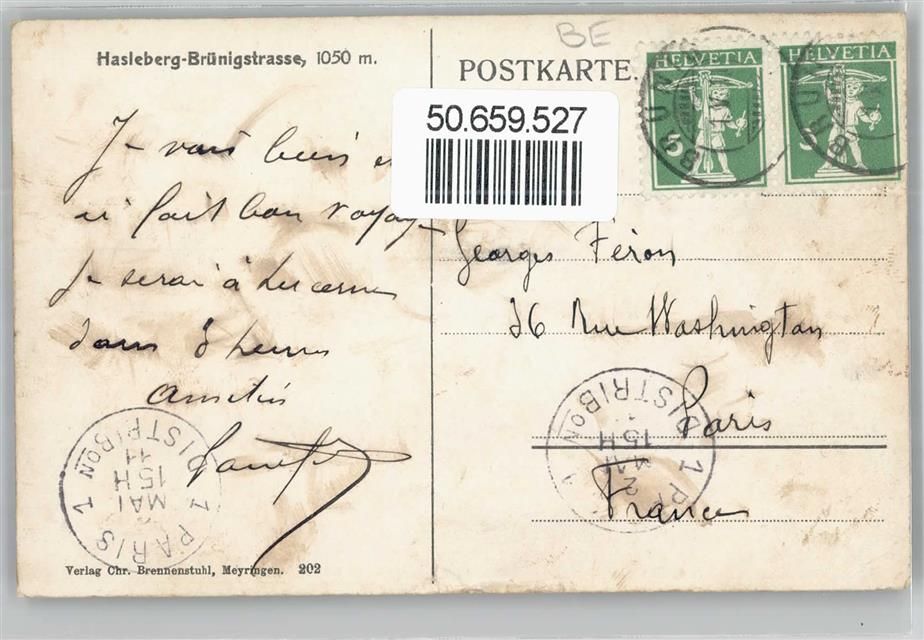 BE
Hasleberg-Brünigstrasse, 1050 m.
POSTKARTE.
HELVETIA HELVETIA
5 5
50.659.527
Je vais bien
ai fait bon voyage
Je serai à Lucerne
dans 3 heures
Amitiés
Georges Féron
26 Rue Washington
Paris
France
PARIS 1 DISTRIBON
MAI
15H
11
PARIS 1 DISTRIBON
2
MAI
15H
Verlag Chr. Brennenstuhl, Meyringen. 202